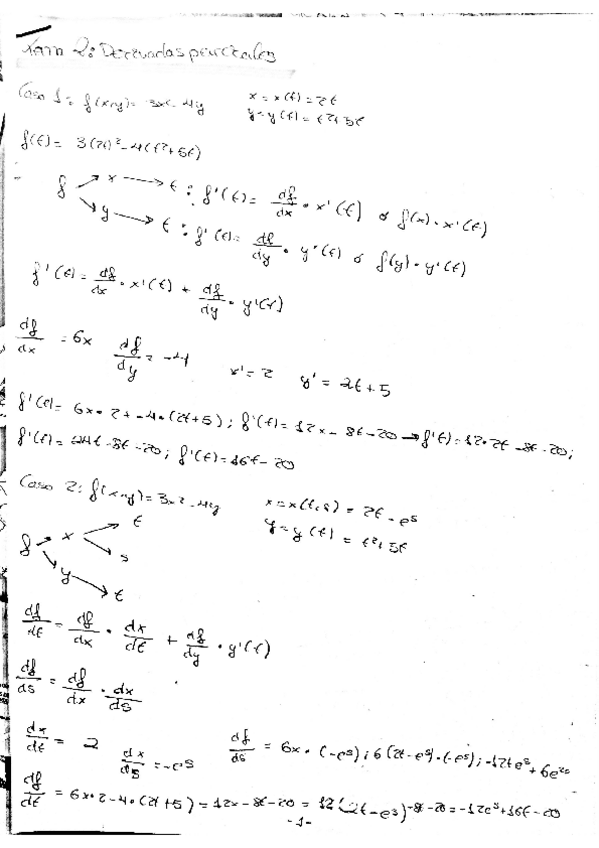 Tema 2: Derivadas parciales
Caso 1: f(x,y) = 3x² - 4y x = x(t) = 2t
y = y(t) = t² + 5t
f(t) = 3(2t)² - 4(t² + 5t)
f → x → t : f'(t) = df/dx · x'(t) o f(x) · x'(t)
→ y → t : f'(t) = df/dy · y'(t) o f(y) · y'(t)
f'(t) = df/dx · x'(t) + df/dy · y'(t)
df/dx = 6x df/dy = -4 x' = 2 y' = 2t + 5
f'(t) = 6x · 2 + -4 · (2t+5) ; f'(t) = 12x - 8t - 20 → f'(t) = 12 · 2t - 8t - 20 ;
f'(t) = 24t - 8t - 20 ; f'(t) = 16t - 20
Caso 2: f(x,y) = 3x² - 4y x = x(t,s) = 2t - e^s
y = y(t) = t² + 5t
f → x → t
→ s
→ y → t
df/dt = df/dx · dx/dt + df/dy · y'(t)
df/ds = df/dx · dx/ds
dx/dt = 2 dx/ds = -e^s df/ds = 6x · (-e^s) ; 6(2t - e^s) · (-e^s) ; -12te^s + 6e^2s
df/dt = 6x · 2 - 4 · (2t+5) = 12x - 8t - 20 = 12(2t - e^s) - 8t - 20 = -12e^s + 16t - 20
-1-